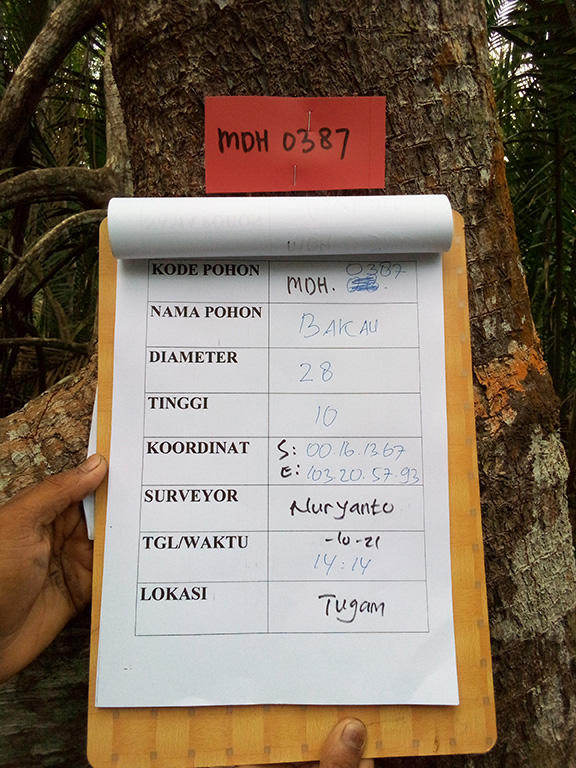 MDH 0387
KODE POHON MDH. 0387
NAMA POHON BAKAU
DIAMETER 28
TINGGI 10
KOORDINAT S: 00.16.13.67
E: 103.20.57.93
SURVEYOR Nuryanto
TGL/WAKTU -10-21
14:14
LOKASI Tugam